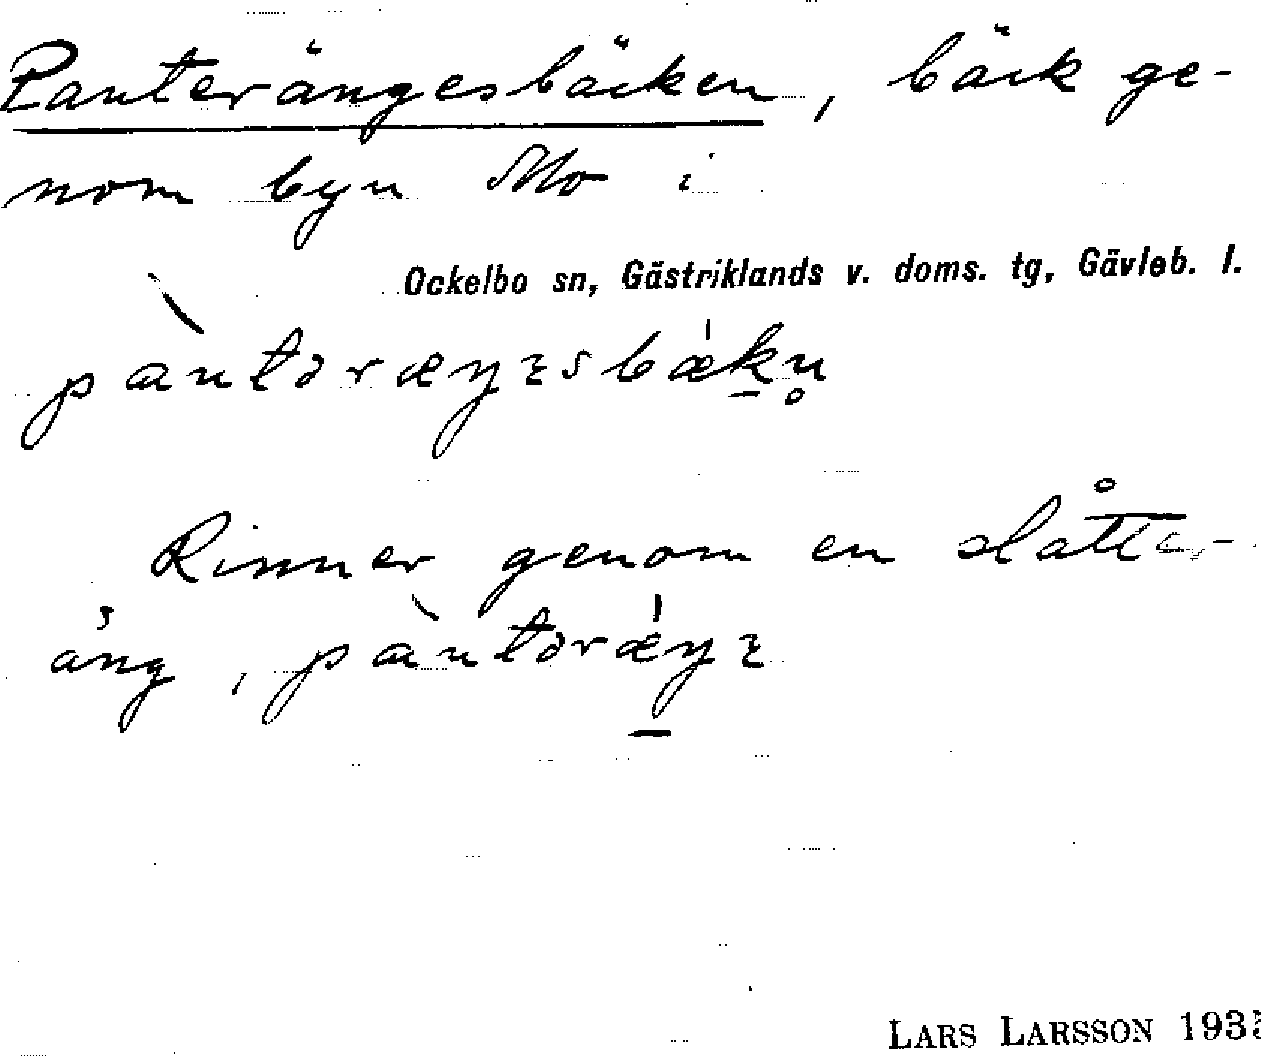 Panterängesbäcken, bäck ge-
nom byn Mo i
Ockelbo sn, Gästriklands v. doms. tg, Gävleb. l.
pàntəræŋɛsbæ̀kn̥
Rinner genom en slåtter-
äng, pàntərǽŋɛ
LARS LARSSON